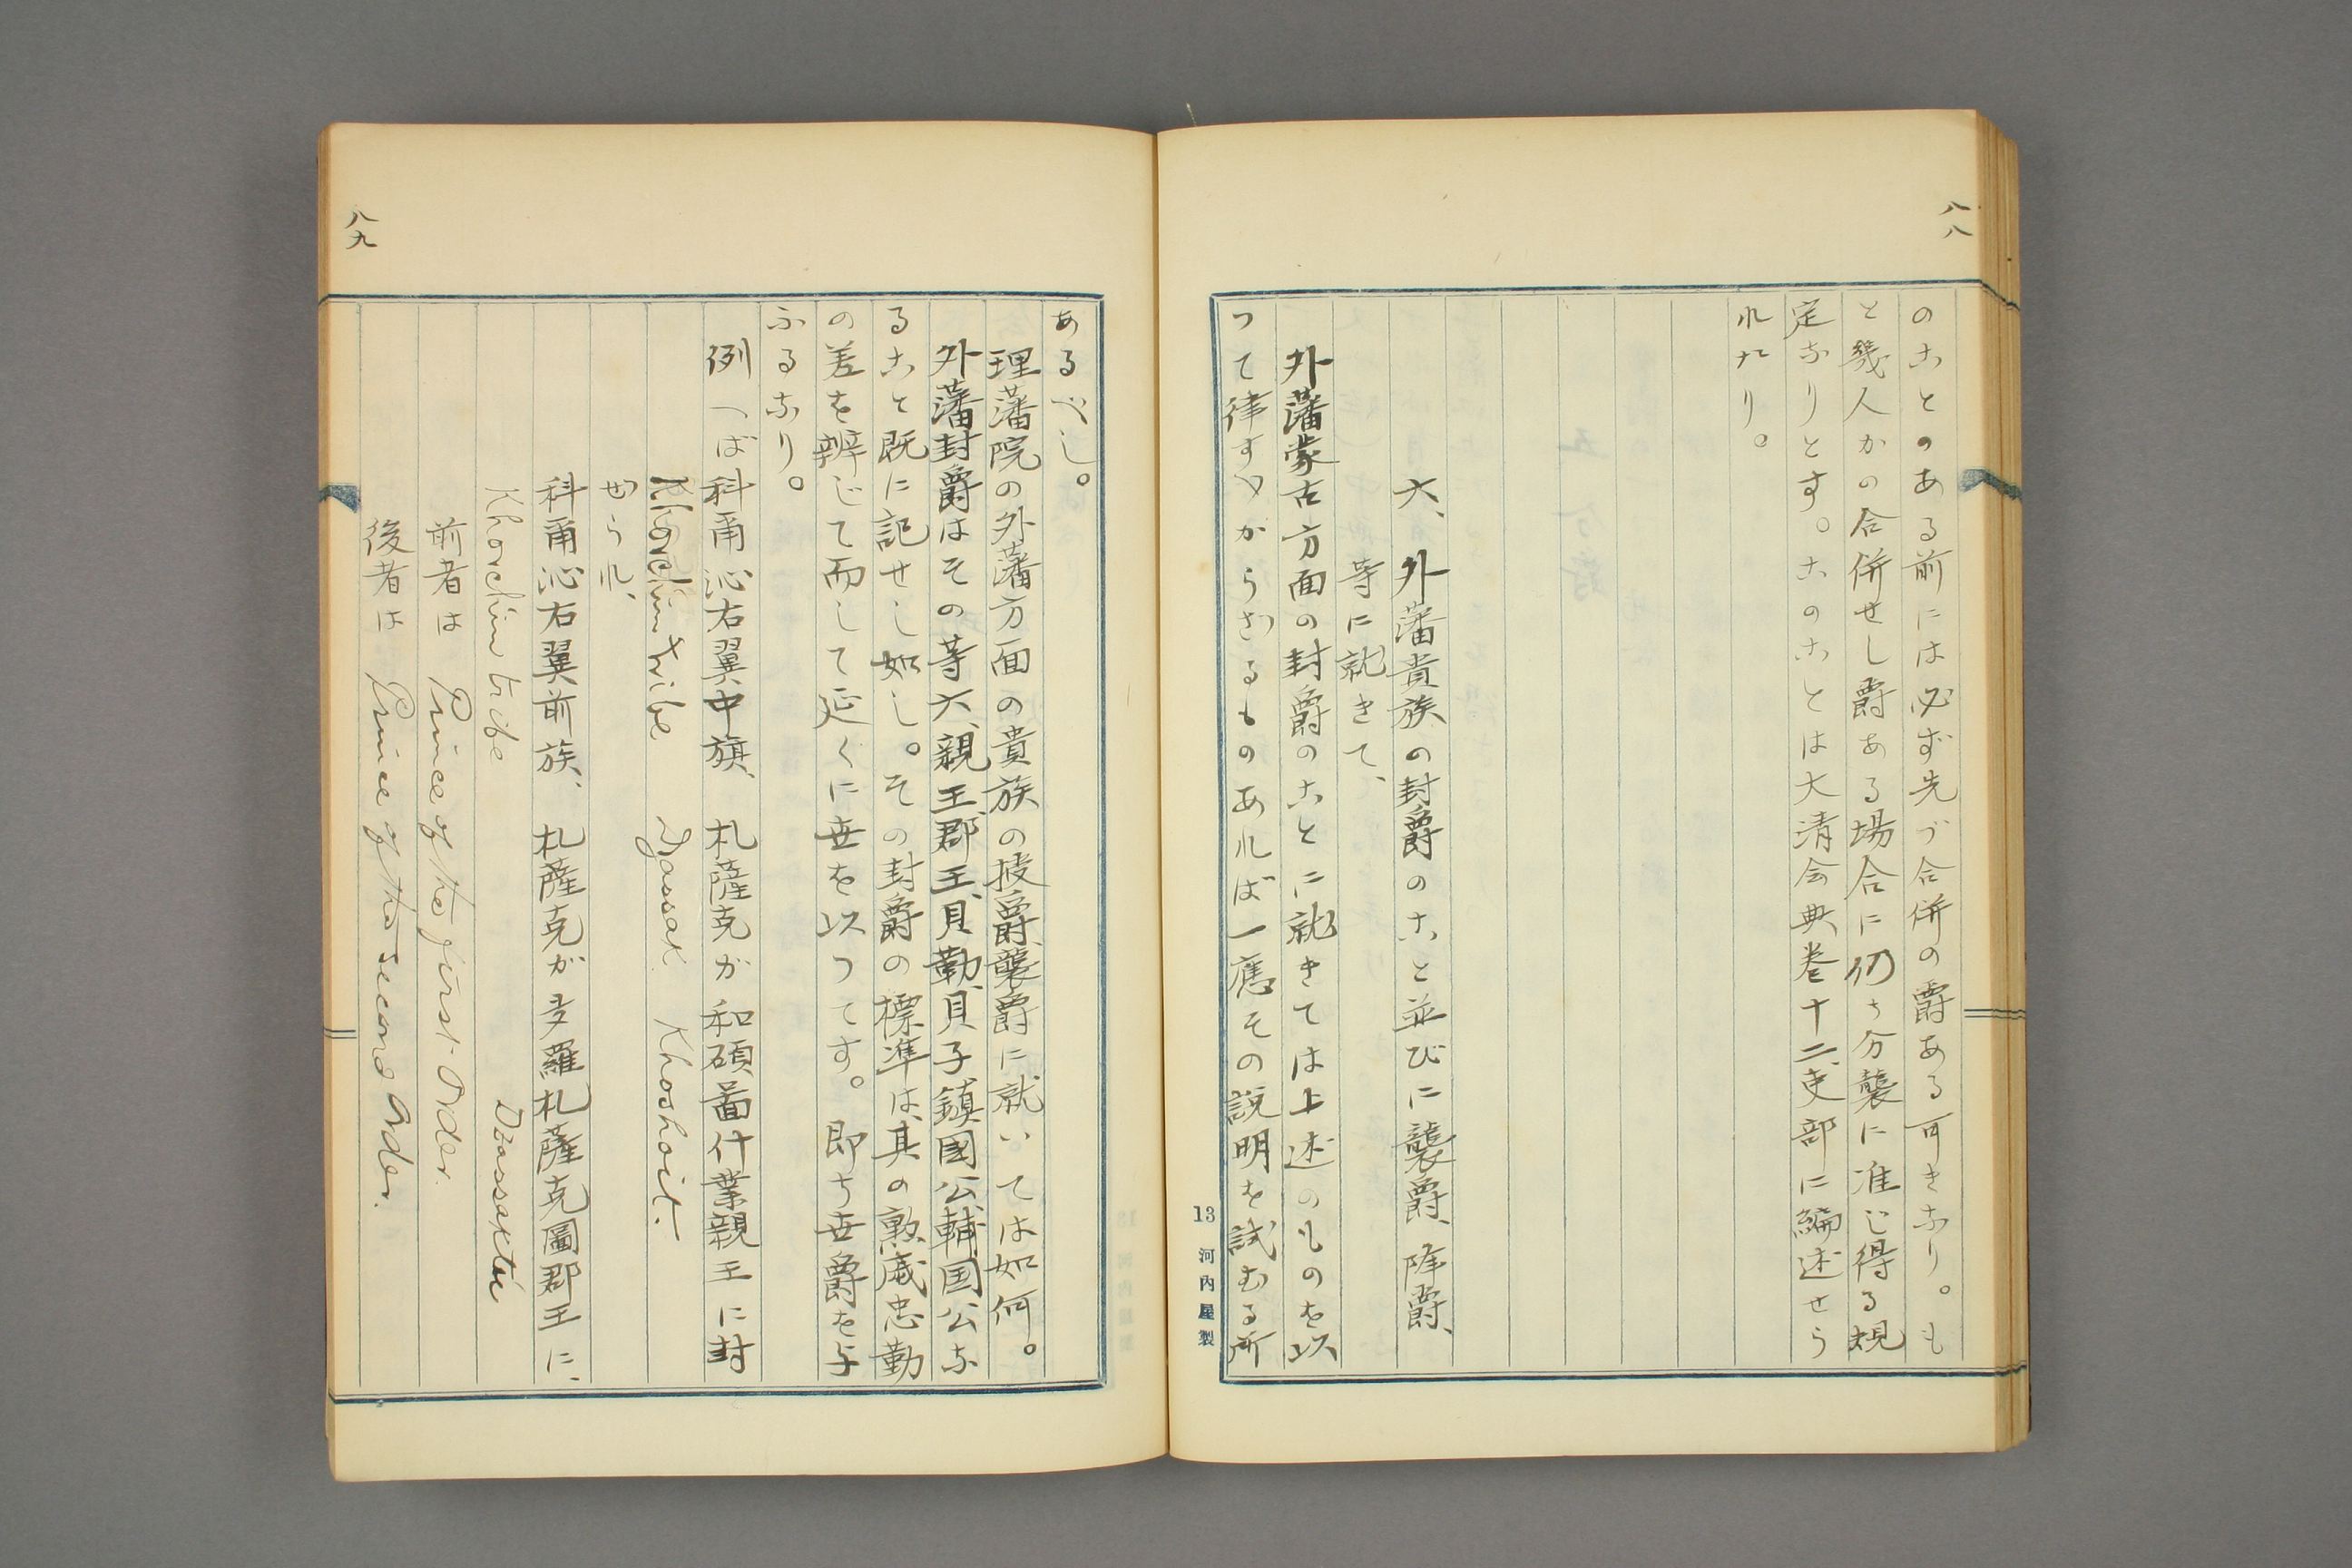 八八
のことのある前には必ず先づ合併の爵ある可きなり。も
と幾人かの合併せし爵ある場合に仍ち分襲に准じ得る規
定なりとす。このことは大清会典巻十二、吏部に編述せら
れたり。
六、外藩貴族の封爵のこと並びに襲爵、降爵、
等に就きて、
外藩蒙古方面の封爵のことに就きては上述のものを以
つて律すべからざるものあれば一應その説明を試むる所
13 河内屋製
八九
あるべし。
理藩院の外藩方面の貴族の授爵襲爵に就いては如何。
外藩封爵はその等六、親王、郡王、貝勒、貝子、鎮國公、輔国公な
ること既に記せし如し。その封爵の標準は、其の勲戚忠勤
の差を辨じて而して延くに世を以つてす。即ち世爵を与
ふるなり。
例へば科甭沁右翼中旗、札薩克が和碩啚什業親王に封
Khorchin tribe Jassak Khoshoit.
せられ、
科甭沁右翼前族、札薩克が多羅札薩克圖郡王に、
Khorchin tribe Dzassaktoi
前者は Prince of the first order.
後者は Prince of the second order.